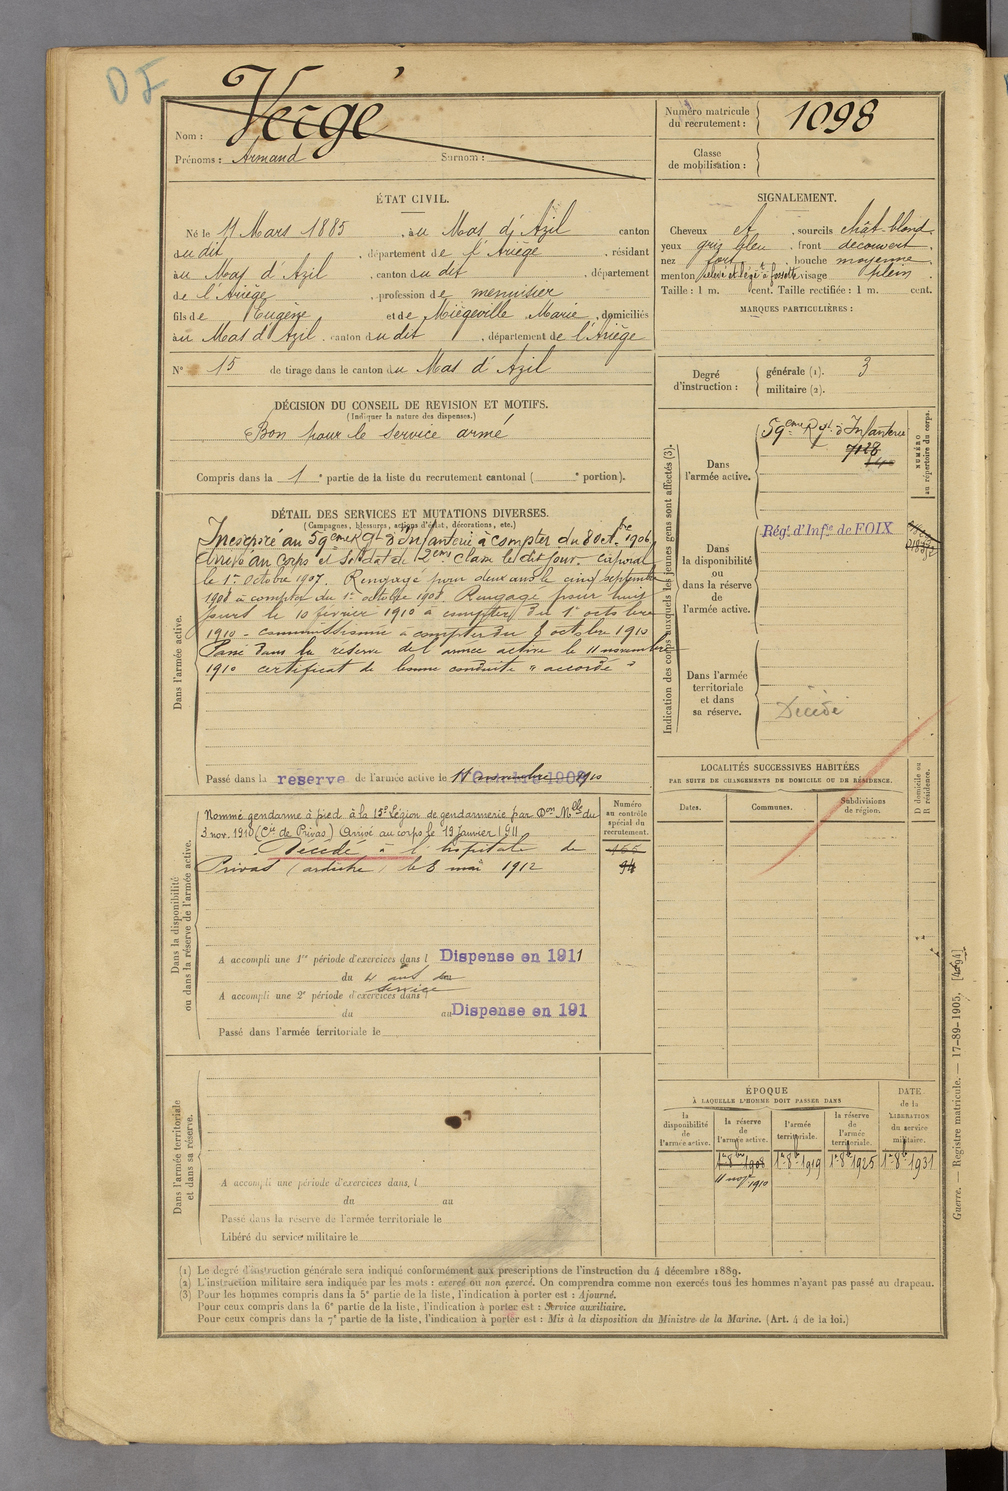 DF
Nom : Vergé
Prénoms : Armand Surnom :
Numéro matricule du recrutement : 1098
Classe de mobilisation :
ÉTAT CIVIL.
Né le 11 Mars 1885, au Mas d'Azil canton
du dit, département de l'Ariège, résidant
au Mas d'Azil, canton du dit, département
de l'Ariège, profession de menuisier
fils de Eugène et de Miègeville Marie, domiciliés
au Mas d'Azil, canton du dit, département de l'Ariège
N° 15 de tirage dans le canton du Mas d'Azil
SIGNALEMENT.
Cheveux et, sourcils chât-blond.
yeux gris bleu, front découvert.
nez fort, bouche moyenne
menton à fossette visage plein.
Taille : 1 m. cent. Taille rectifiée : 1 m. cent.
MARQUES PARTICULIÈRES :
Degré d'instruction : générale (1). 3
militaire (2).
DÉCISION DU CONSEIL DE REVISION ET MOTIFS.
(Indiquer la nature des dispenses.)
Bon pour le service armé
Compris dans la 1e partie de la liste du recrutement cantonal (e portion).
DÉTAIL DES SERVICES ET MUTATIONS DIVERSES.
(Campagnes, blessures, actions d'éclat, décorations, etc.)
Dans l'armée active.
Incorporé au 59eme Rgt d'Infanterie à compter du 8 octbre 1906,
Arrivé au corps et soldat de 2eme classe le dit jour. Caporal
le 1er octobre 1907. Rengagé pour deux ans le cinq septembre
1908 à compter du 1er octobre 1908. Rengagé pour huit
jours le 10 février 1910 à compter du 1er octobre
1910 - commissionné à compter du 8 octobre 1910
Passé dans la réserve de l'armée active le 11 novembre
1910 certificat de bonne conduite "accordé"
Passé dans la réserve de l'armée active le 11 novembre 1910
Dans la disponibilité ou dans la réserve de l'armée active.
Nommé gendarme à pied à la 15e Légion de gendarmerie par Don Mlle du
3 nov. 1910 (Cie de Privas) Arrivé au corps le 19 Janvier 1911
Décédé à l'hopital de
Privas (ardèche) le 8 mai 1912
Numéro au contrôle spécial du recrutement.
94
A accompli une 1re période d'exercices dans l Dispense en 1911
du 4 ans de service
A accompli une 2e période d'exercices dans l
du au Dispense en 191
Passé dans l'armée territoriale le
Dans l'armée territoriale et dans sa réserve.
A accompli une période d'exercices dans, l
du au
Passé dans la réserve de l'armée territoriale le
Libéré du service militaire le
Indication des corps auxquels les jeunes gens sont affectés (3).
NUMÉRO au répertoire du corps.
Dans l'armée active.
59eme Rgt d'Infanterie
7128
Dans la disponibilité ou dans la réserve de l'armée active.
Régt d'Infie de FOIX
Dans l'armée territoriale et dans sa réserve.
Décédé
LOCALITÉS SUCCESSIVES HABITÉES
PAR SUITE DE CHANGEMENTS DE DOMICILE OU DE RÉSIDENCE.
Dates. Communes. Subdivisions de région. D domicile ou R résidence.
ÉPOQUE
À LAQUELLE L'HOMME DOIT PASSER DANS
DATE de la LIBÉRATION du service militaire.
la disponibilité de l'armée active. la réserve de l'armée active. l'armée territoriale. la réserve de l'armée territoriale.
1er 8bre 1908 1er 8bre 1919 1er 8bre 1925 1er 8bre 1931
11 nov 1910
(1) Le degré d'instruction générale sera indiqué conformément aux prescriptions de l'instruction du 4 décembre 1889.
(2) L'instruction militaire sera indiquée par les mots : exercé ou non exercé. On comprendra comme non exercés tous les hommes n'ayant pas passé au drapeau.
(3) Pour les hommes compris dans la 5e partie de la liste, l'indication à porter est : Ajourné.
Pour ceux compris dans la 6e partie de la liste, l'indication à porter est : Service auxiliaire.
Pour ceux compris dans la 7e partie de la liste, l'indication à porter est : Mis à la disposition du Ministre de la Marine. (Art. 4 de la loi.)
Guerre. — Registre matricule. — 17-89-1905.